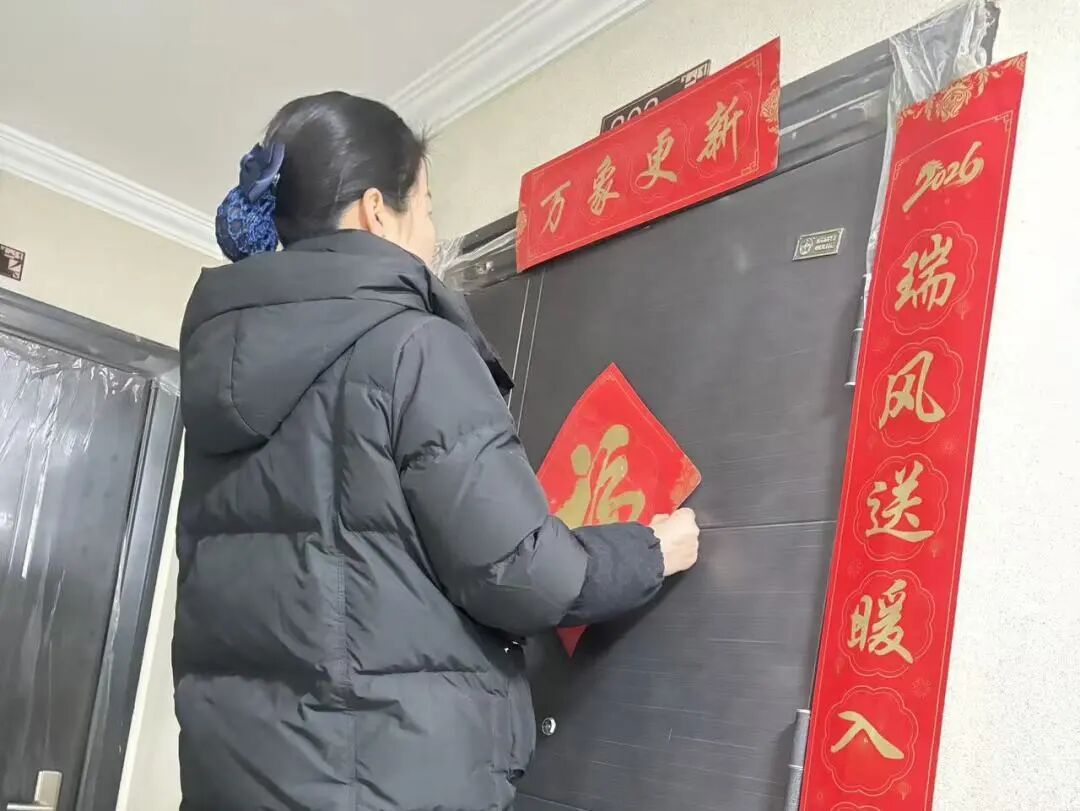 万象更新
2026
瑞风送暖入
福